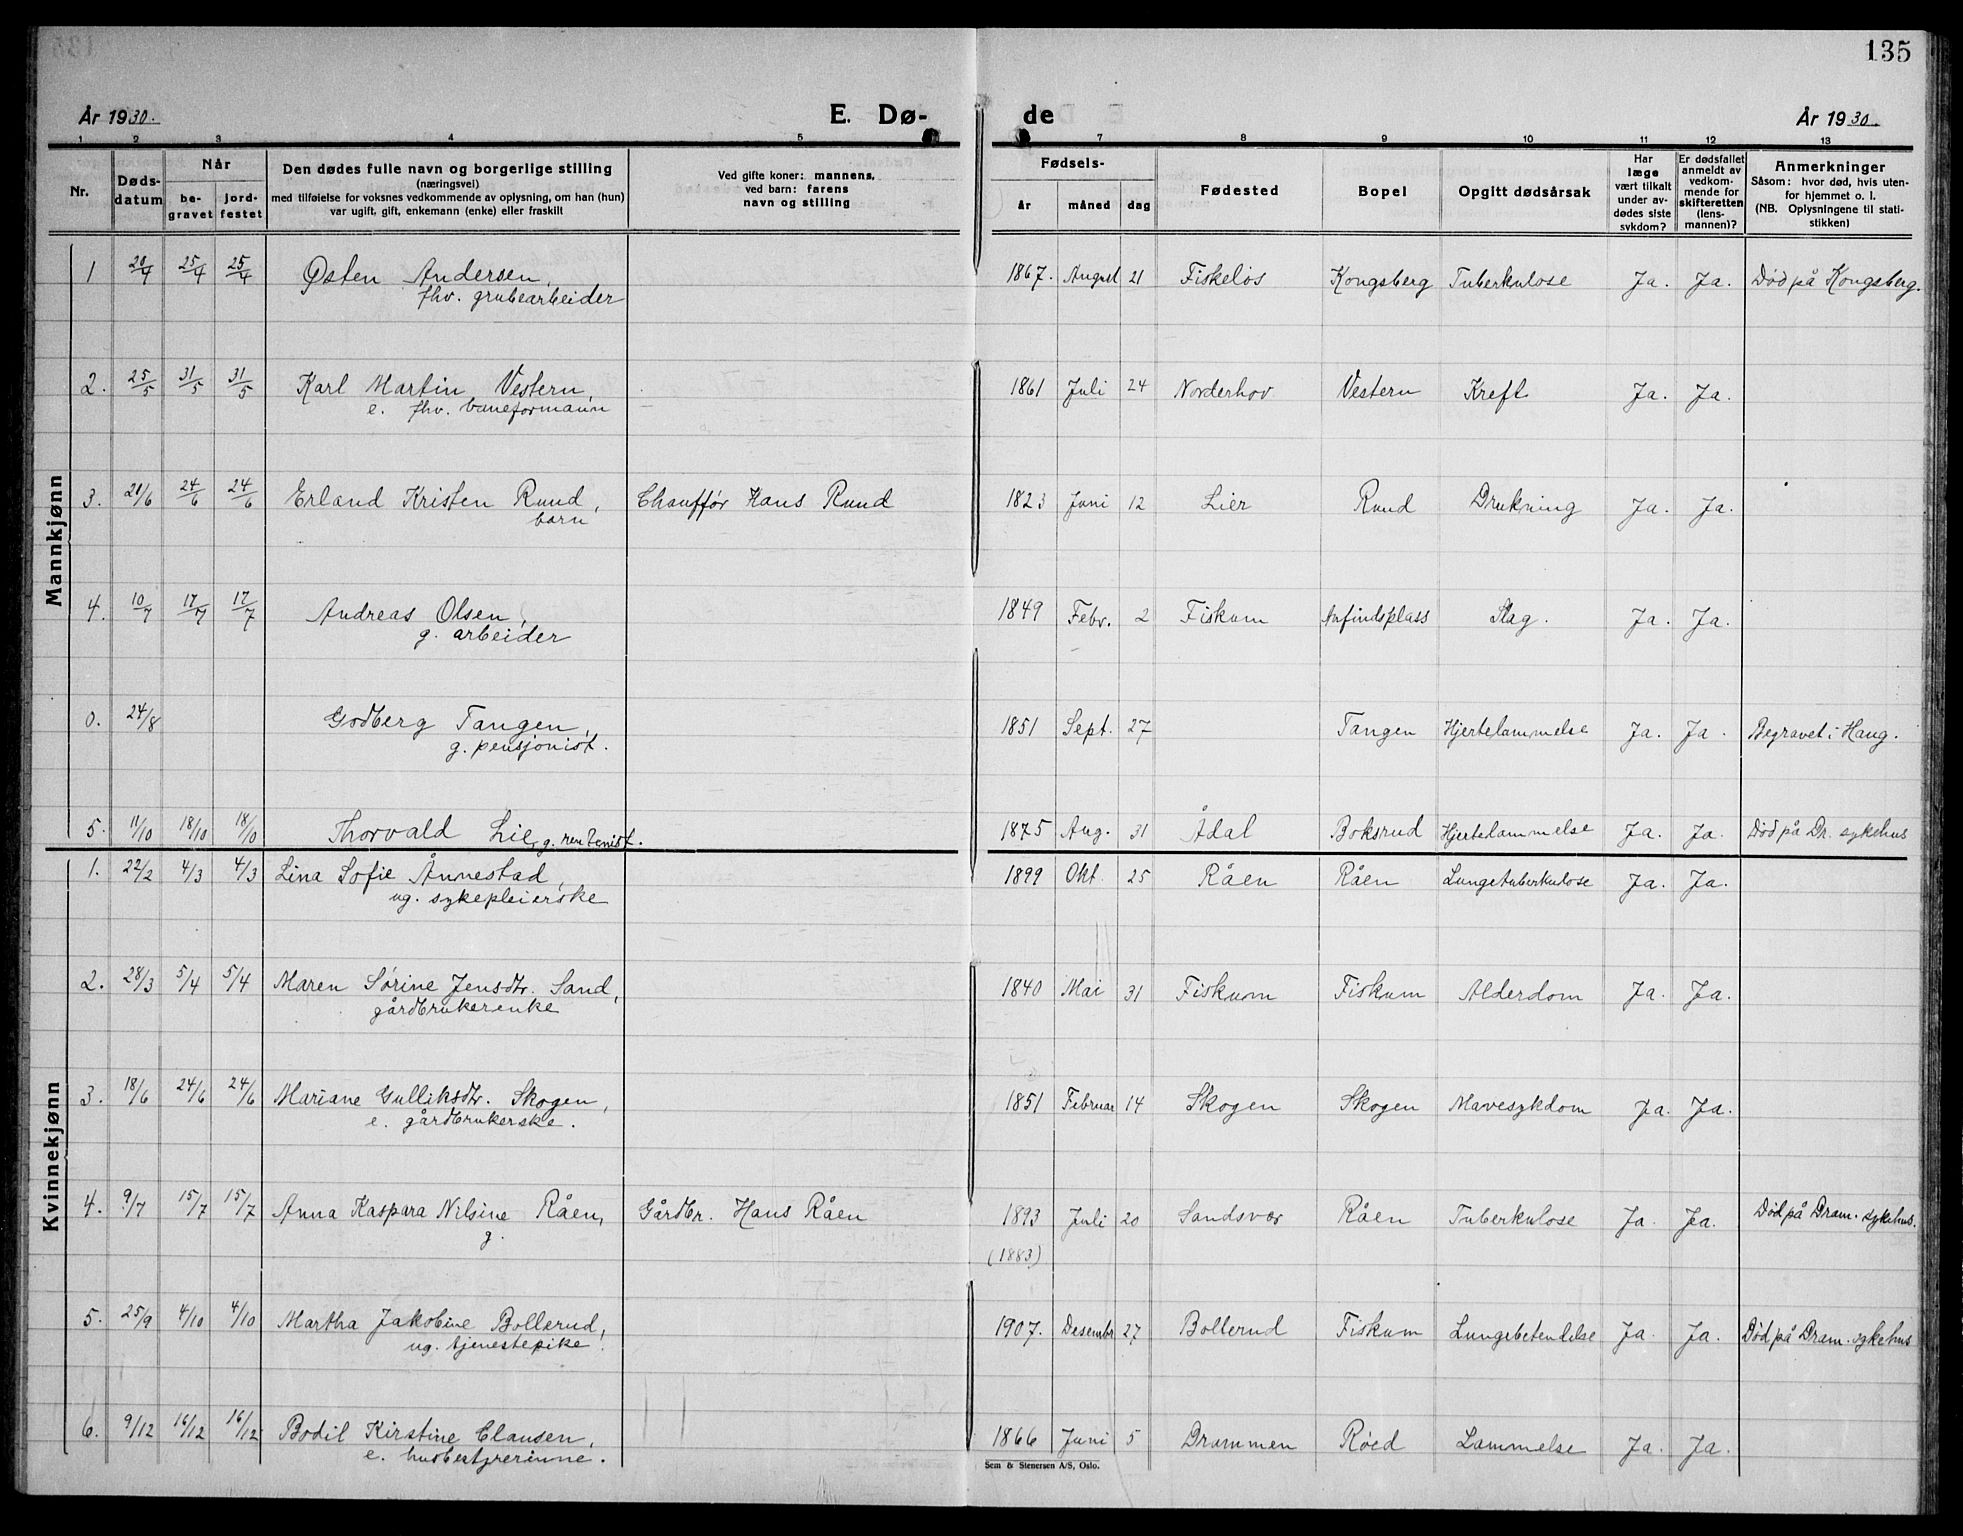 135
År 1930. E. Dø- de År 1930.
1 2 3 4 5 7 8 9 10 11 12 13
Nr. Døds-datum Når be-gravet jord-festet Den dødes fulle navn og borgerlige stilling (næringsvei) med tilføielse for voksnes vedkommende av oplysning, om han (hun) var ugift, gift, enkemann (enke) eller fraskilt Ved gifte koner: mannens, ved barn: farens navn og stilling Fødsels- år måned dag Fødested Bopel Opgitt dødsårsak Har læge vært tilkalt under av-dødes siste sykdom? Er dødsfallet anmeldt av vedkom-mende for skifteretten (lens-mannen)? Anmerkninger Såsom: hvor død, hvis uten-for hjemmet o. l. (NB. Oplysningene til stati-stikken)
Mannkjønn
1 20/4 25/4 25/4 Østen Andersen, 1867. August 21 Fiskeløs Kongsberg Tuberkulose Ja. Ja. Død på Kongsberg.
fhv. grubearbeider
2. 25/5 31/5 31/5 Karl Martin Vestern, 1861 Juli 24 Norderhov Vestern Kreft Ja. Ja.
e. fhv. baneformann
3. 20/6 24/6 24/6 Erland Kristen Ruud, Chauffør Hans Ruud 1823 Juni 12 Lier Ruud Drukning Ja. Ja.
barn
4. 10/7 17/7 17/7 Andreas Olsen, 1849 Febr. 2 Fiskum Anfindsplass Slag. Ja. Ja.
g. arbeider
0. 24/8 Godberg Tangen, 1851 Sept. 27 Tangen Hjertelammelse Ja. Ja. Begravet i Haug.
g. pensjonist.
5. 11/10 18/10 18/10 Thorvald Lie, g. rentenist. 1875 Aug. 31 Ådal Boksrud Hjertelammelse Ja. Ja. Død på Dr. sykehus
Kvinnekjønn
1. 22/2 4/3 4/3 Lina Sofie Ånnestad, 1899 Okt. 25 Råen Råen Lungetuberkulose Ja. Ja.
ug. sykepleierske
2. 28/3 5/4 5/4 Maren Sørine Jensdtr. Sand, 1840 Mai 31 Fiskum Fiskum Alderdom Ja. Ja.
gårdbrukerenke
3. 18/6 24/6 24/6 Mariane Gulliksdtr. Skogen, 1851 Februar 14 Skogen Skogen Mavesykdom Ja. Ja.
e. gårdbrukerske.
4. 9/7 15/7 15/7 Anna Kaspara Nilsine Råen, Gårdbr. Hans Råen 1893 Juli 20 Sandsvær Råen Tuberkulose Ja. Ja. Død på Dram. sykehus.
g. (1883)
5. 25/9 4/10 4/10 Martha Jakobine Bollerud, 1907. Desembr 27 Bollerud Fiskum Lungebetendelse Ja. Ja. Død på Dram. sykehus
ug. tjenestepike.
6. 9/12 16/12 16/12 Bodil Kirstine Clausen, 1866 Juni 5 Drammen Røed Lammelse Ja. Ja.
e. husbestyrerinne.
Sem & Stenersen A/S, Oslo.